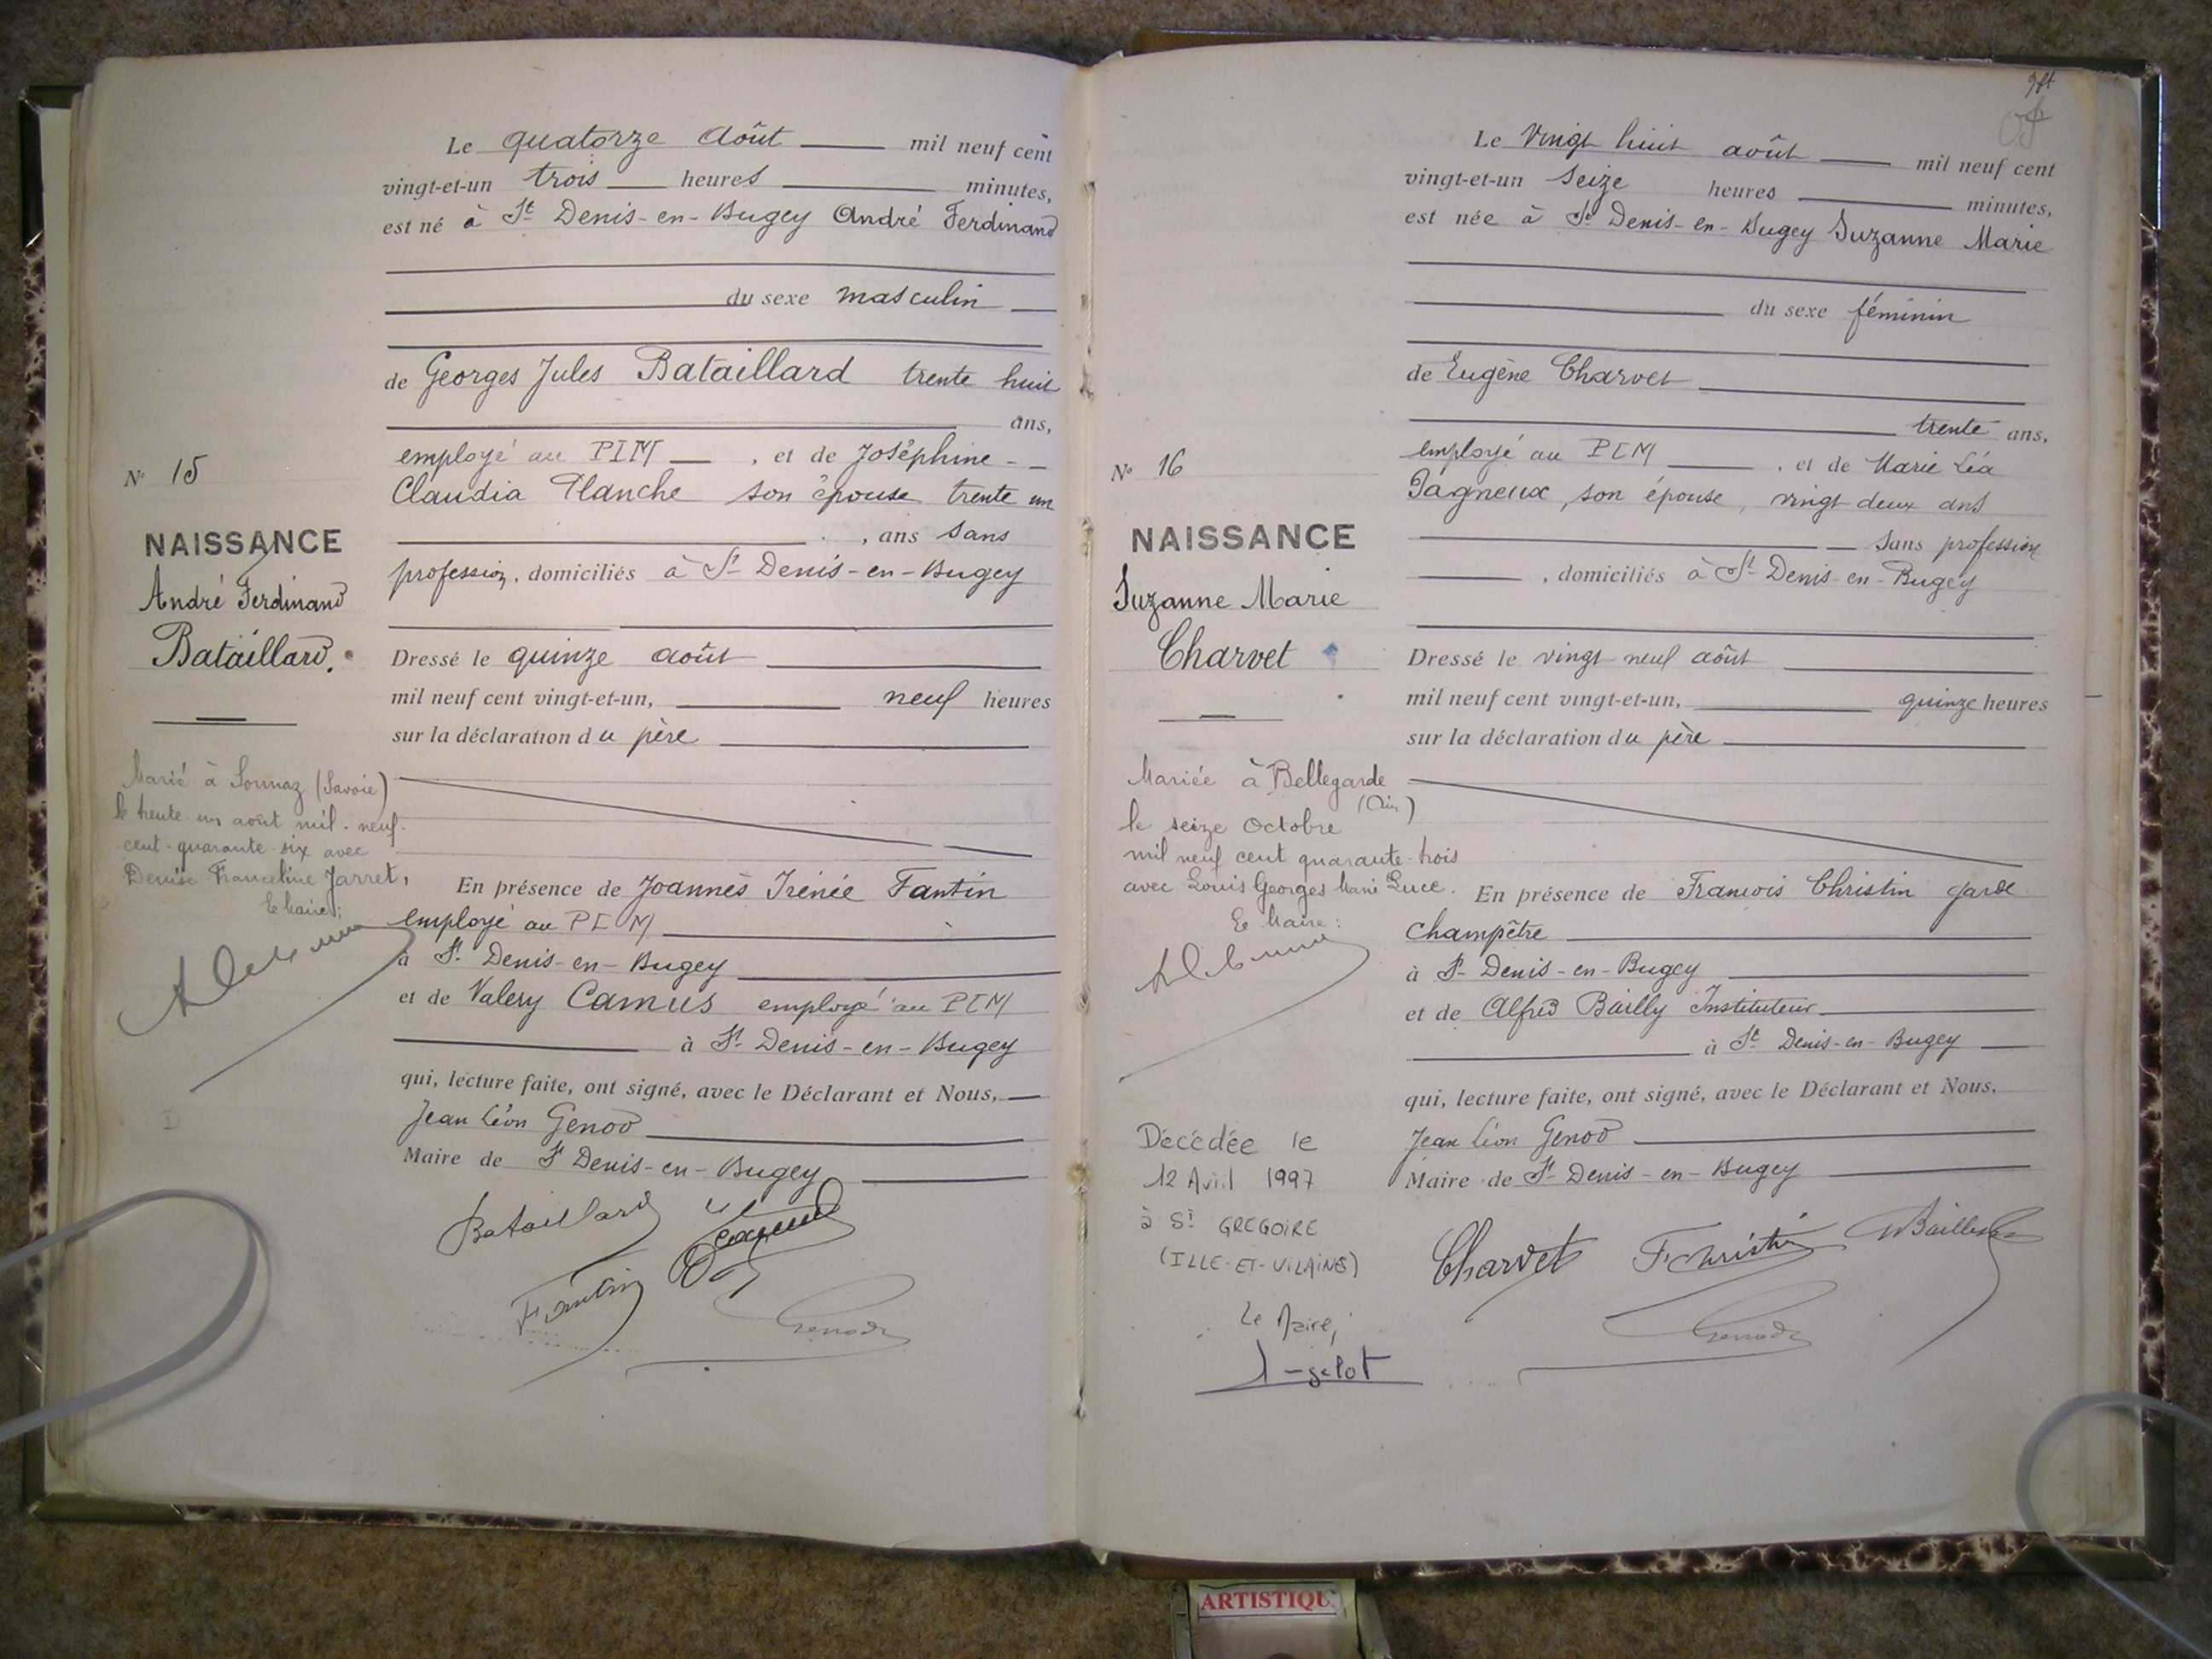 Le quatorze Août mil neuf cent
vingt-et-un trois heures minutes,
est né à St Denis-en-Bugey André Ferdinand
du sexe masculin
de Georges Jules Bataillard trente huit
ans,
employé au PLM , et de Joséphine
Claudia Planche son épouse trente un
, ans sans
profession, domiciliés à St Denis-en-Bugey
Dressé le quinze août
mil neuf cent vingt-et-un, neuf heures
sur la déclaration du père
En présence de Joannès Irénée Fantin
employé au PLM
à St Denis-en-Bugey
et de Valery Camus employé au PLM
à St Denis-en-Bugey
qui, lecture faite, ont signé, avec le Déclarant et Nous,
Jean Léon Genod
Maire de St Denis-en-Bugey
Bataillard Camus
Fantin
Genod
No 15
NAISSANCE
André Ferdinand
Bataillard.
Marié à Sonnaz (Savoie)
le trente-un août mil-neuf-
cent-quarante-six avec
Denise Franceline Jarret,
Le Maire:
Le Vingt huit août mil neuf cent
vingt-et-un Seize heures minutes,
est née à St Denis-en-Bugey Suzanne Marie
du sexe féminin
de Eugène Charvet
trente ans,
employé au PLM , et de Marie Léa
Pagneux, son épouse, vingt deux ans
Sans profession
, domiciliés à St Denis-en-Bugey
Dressé le vingt neuf août
mil neuf cent vingt-et-un, quinze heures
sur la déclaration du père
En présence de François Christin garde
Champêtre
à St Denis-en-Bugey
et de Alfred Bailly Instituteur
à St Denis-en-Bugey
qui, lecture faite, ont signé, avec le Déclarant et Nous,
Jean Léon Genod
Maire de St Denis-en-Bugey
Charvet F Christin Bailly
Genod
No 16
NAISSANCE
Suzanne Marie
Charvet
Mariée à Bellegarde
(Ain)
le seize Octobre
mil neuf cent quarante-trois
avec Louis Georges Marie Luce.
Le Maire:
Décédée le
12 Avril 1997
à St GREGOIRE
(ILLE-ET-VILAINE)
Le Maire,
ARTISTIQU